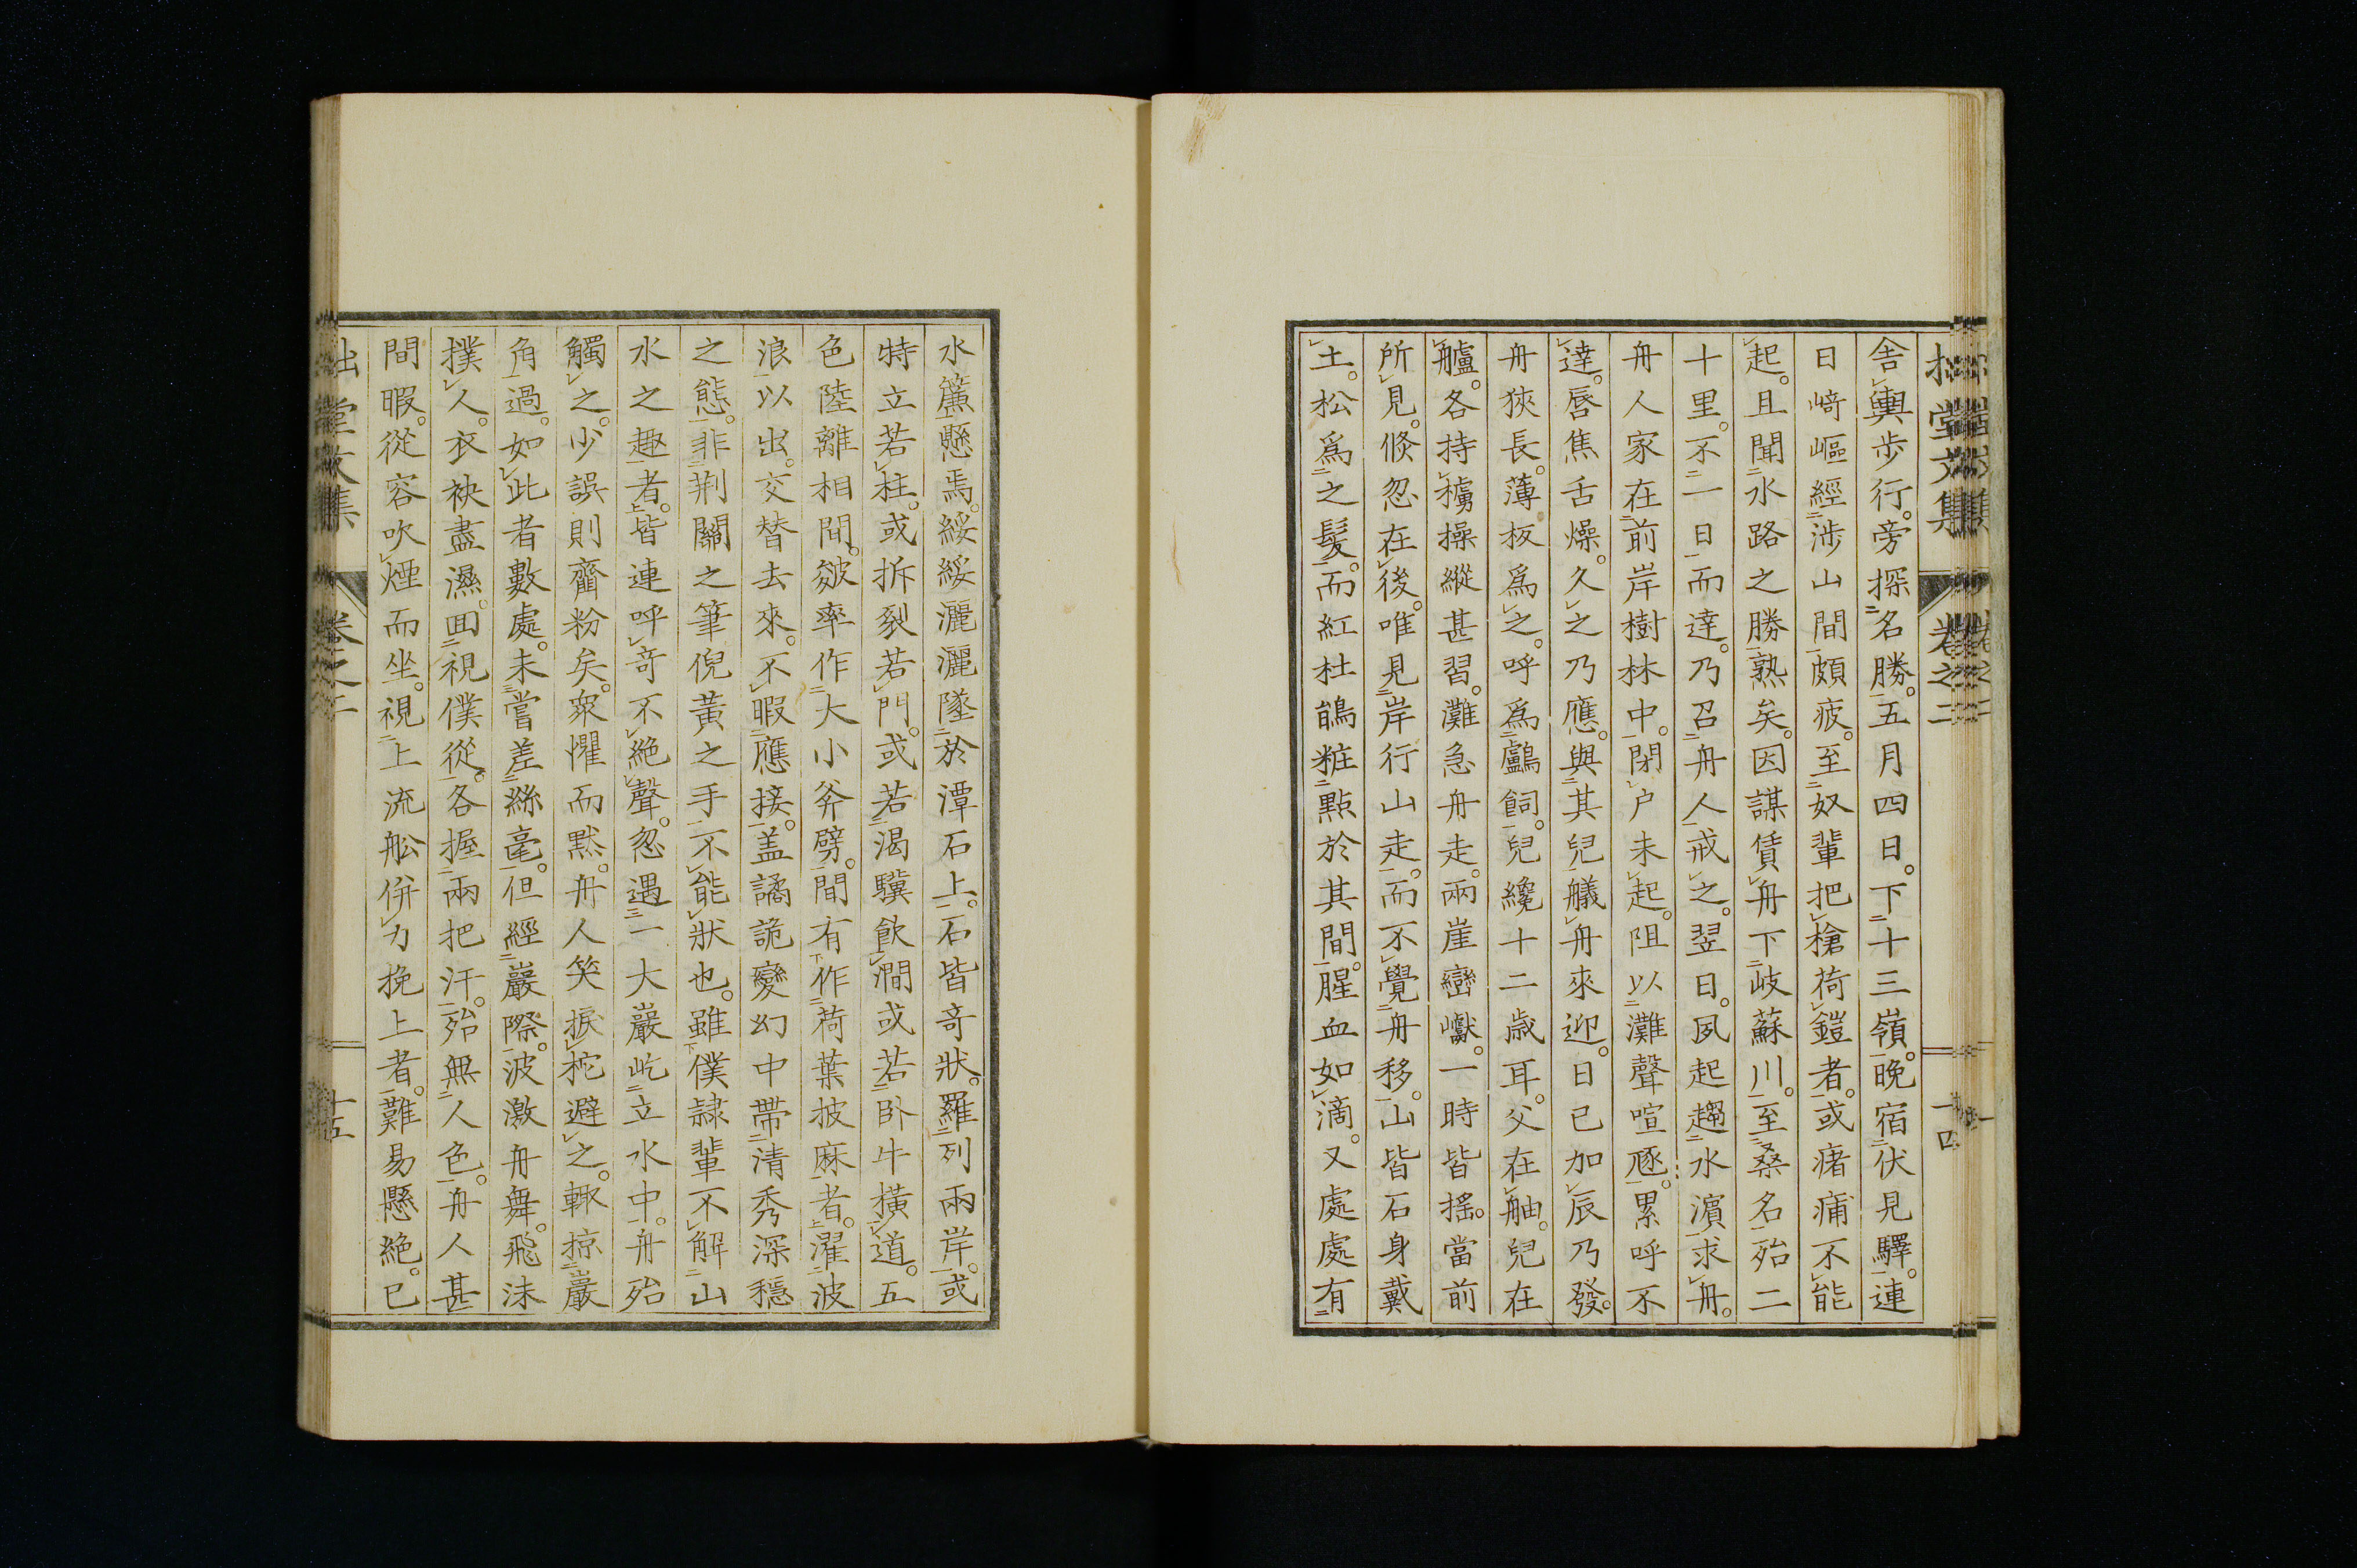 拙堂文集 卷之二 十四
舎輿歩行。旁探名勝。五月四日。下十三嶺。晩宿伏見驛。連
日﨑嶇經渉山間。頗疲。至奴輩把槍荷鎧者。或瘏痡不能
起。且聞水路之勝熟矣。因謀賃舟下岐蘇川。至桑名。殆二
十里。不一日而達。乃召舟人戒之。翌日。夙起趨水濵求舟。
舟人家在前岸樹林中。閉户未起。阻以灘聲喧豗。累呼不
達。唇焦舌燥。久之乃應。與其兒艤舟來迎。日已加辰乃發。
舟狹長。薄板爲之。呼爲鸕飼。兒纔十二歳耳。父在舳。兒在
艫。各持櫓操縱甚習。灘急舟走。兩崖巒巘。一時皆搖。當前
所見。倐忽在後。唯見岸行山走。而不覺舟移。山皆石身戴
土。松爲之髮。而紅杜鵑粧點於其間。腥血如滴。又處處有
水簾懸焉。綏綏灑灑墜於潭石上。石皆竒狀。羅列兩岸。或
特立若柱。或拆裂若門。或若渴驥飲澗或若卧牛橫道。五
色陸離相間。皴率作大小斧劈。間有作荷葉披麻者。濯波
浪以出。交替去來。不暇應接。盖譎詭變幻中帶清秀深穩
之態。非荆關之筆倪黃之手。不能狀也。雖僕隷輩不解山
水之趣者。皆連呼竒不絶聲。忽遇一大巖屹立水中。舟殆
觸之。少誤則齏粉矣。衆懼而黙。舟人笑捩柁避之。輙掠巖
角過。如此者數處。未嘗差絲毫。但經巖際。波激舟舞。飛沫
撲人。衣袂盡濕。囬視僕從。各握兩把汗。殆無人色。舟人甚
間暇。從容吹煙而坐。視上流舩併力挽上者。難易懸絶。已
拙堂文集 卷之二 十五